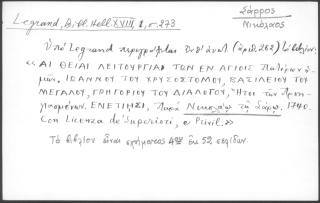 Legrand, Bibl. Hell XVIII 1, σ. 273
Σάρρος
Νικόλαος
Ὑπὸ Legrand περιγράφεται (ἀριθ. 262)
«ΑΙ ΘΕΙΑΙ ΛΕΙΤΟΥΡΓΙΑΙ ΤΩΝ ΕΝ ΑΓΙΟΙΣ Πατέρων ἡ-
μῶν, ΙΩΑΝΝΟΥ ΤΟΥ ΧΡΥΣΟΣΤΟΜΟΥ, ΒΑΣΙΛΕΙΟΥ ΤΟΥ
ΜΕΓΑΛΟΥ, ΓΡΗΓΟΡΙΟΥ ΤΟΥ ΔΙΑΛΟΓΟΥ, Ἤτοι τῶν Προη-
γιασμένων. ΕΝΕΤΙΗΣΙ, Παρὰ Νικολάῳ τῷ Σάρῳ. 1740.
Con Licenza de' Superiori, e Privil.»
Τὸ βιβλίον εἶναι σχήματος 4ου ἐκ 52 σελίδων.